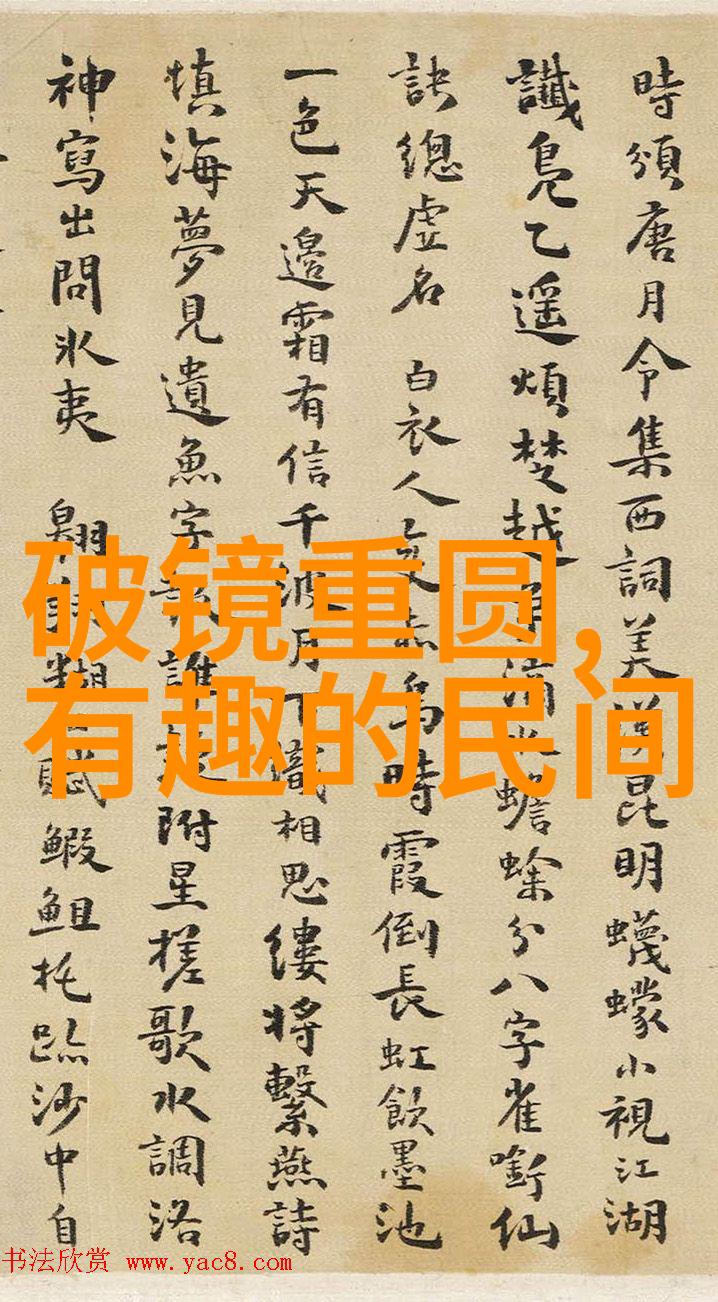 時頒唐月令集西詞美漢昆明蠛蠓小視江湖
讖鳧乙遥煩楚越滴蟾蜍分八字雀銜仙
訣總虛名 白衣人烏時霞倒長虹飲墨池
一色天邊霜有信千波月下識相思縷將繫燕詩
填海夢見遺魚字誰附星槎歌水調洛
神寫出問氷夷 翺糊賦鰕䱉托跡沙中自
破镜重圆,
有趣的民间
书法欣赏 www.yac8.com